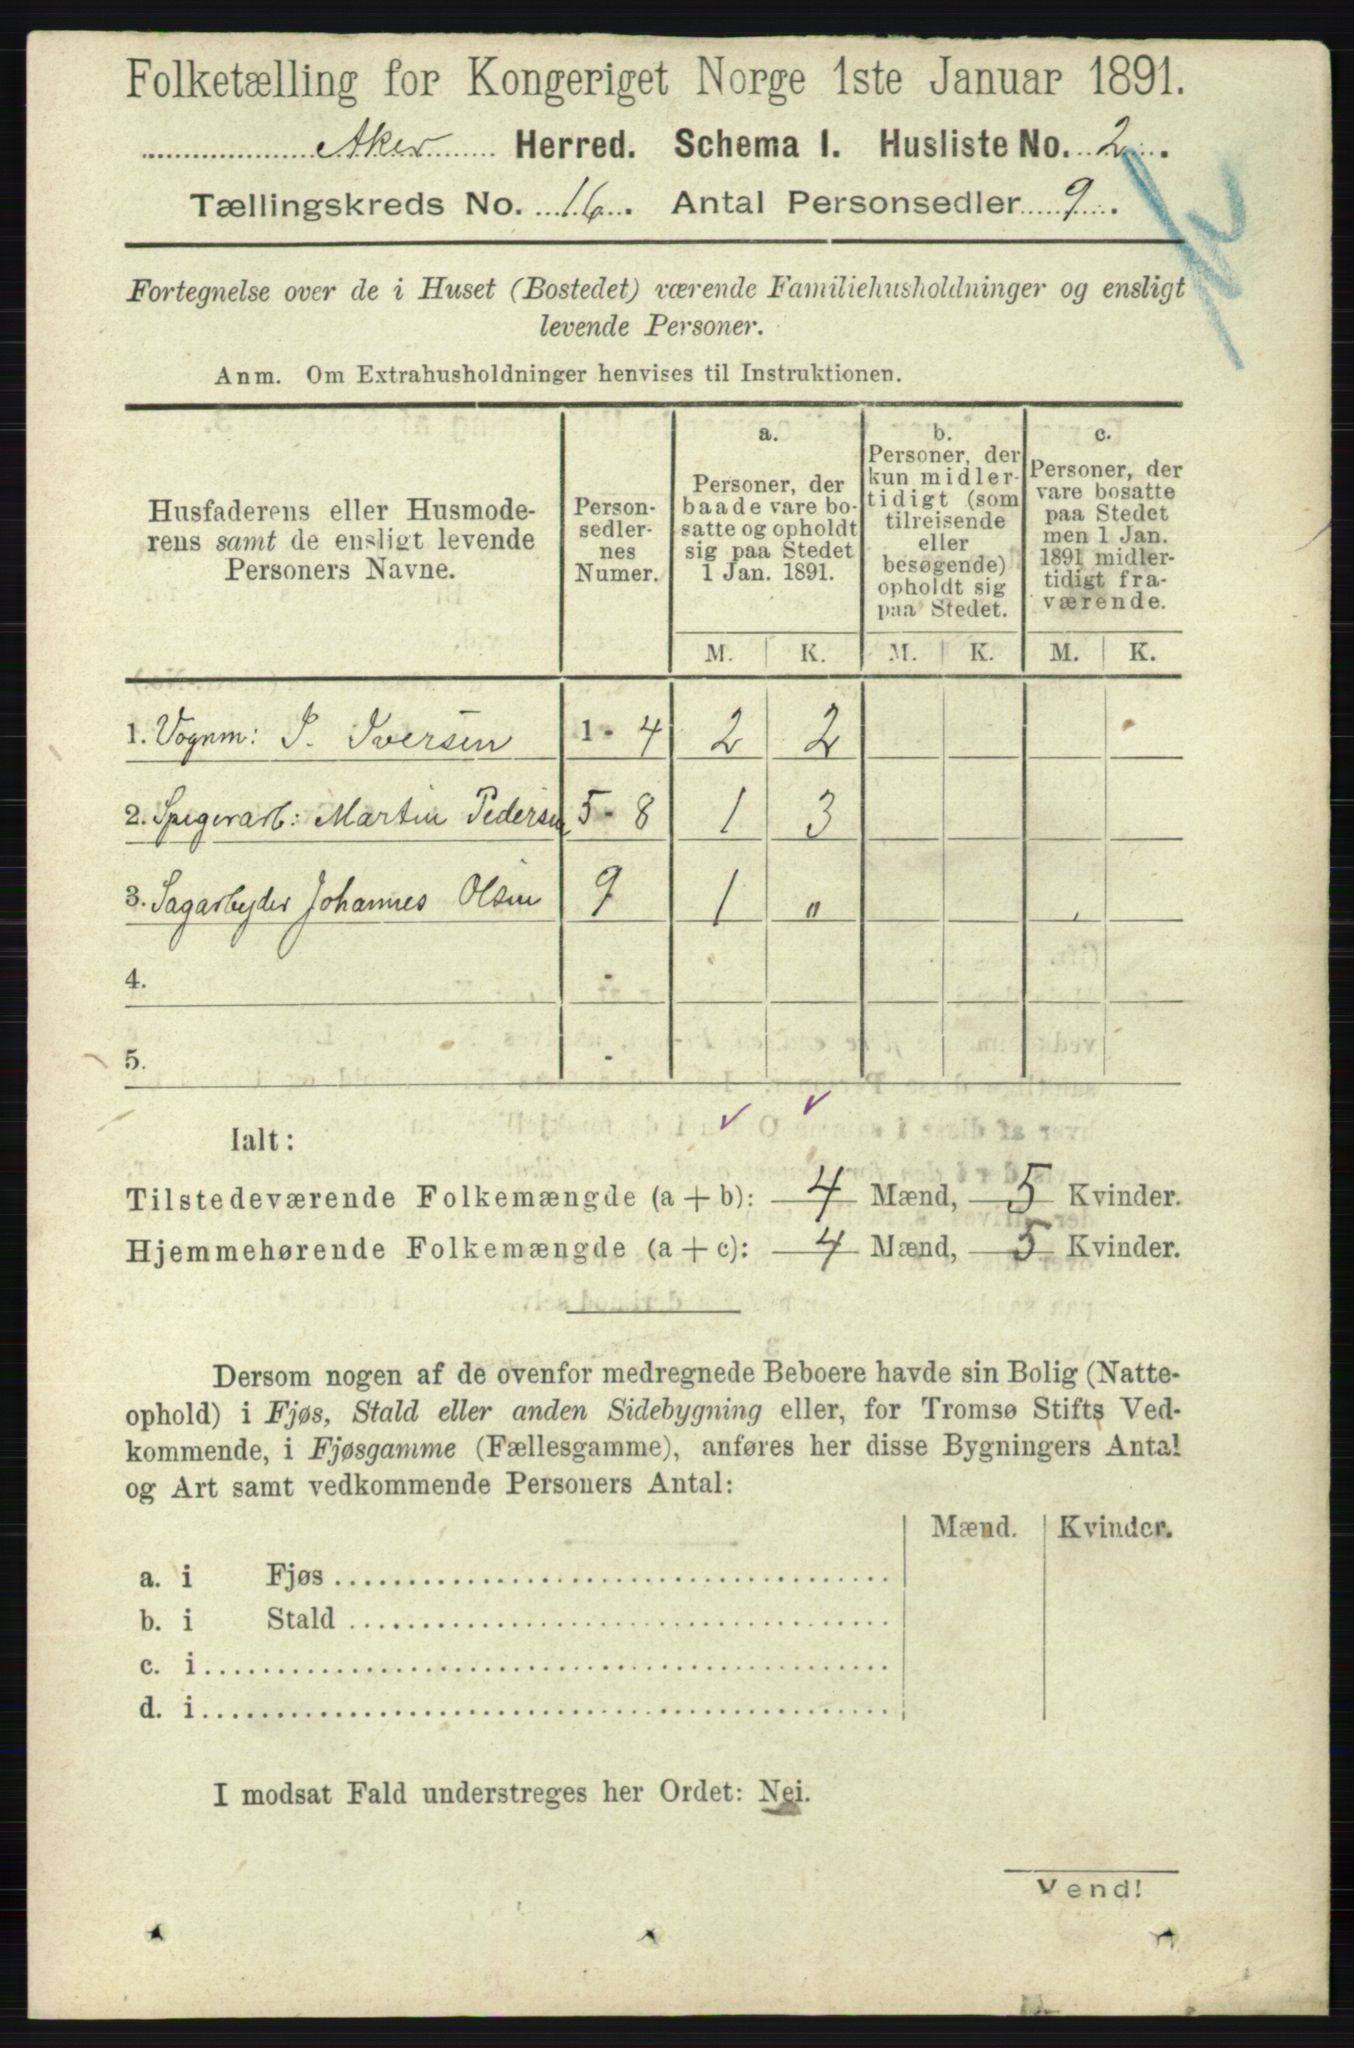 Folketælling for Kongeriget Norge 1ste Januar 1891.
Aker Herred. Schema I. Husliste No. 2.
Tællingskreds No. 16. Antal Personsedler 9.
Fortegnelse over de i Huset (Bostedet) værende Familiehusholdninger og ensligt
levende Personer.
Anm. Om Extrahusholdninger henvises til Instruktionen.
Husfaderens eller Husmode-
rens samt de ensligt levende
Personers Navne.
Person-
sedler-
nes
Numer.
a.
Personer, der
baade vare bo-
satte og opholdt
sig paa Stedet
1 Jan. 1891.
b.
Personer, der
kun midler-
tidigt (som
tilreisende
eller
besøgende)
opholdt sig
paa Stedet.
c.
Personer, der
vare bosatte
paa Stedet
men 1 Jan.
1891 midler-
tidigt fra-
værende.
M. K. M. K. M. K.
1. Vognm: P. Iversen 1 - 4 2 2
2. Spigerarb: Martin Pedersen 5 - 8 1 3
3. Sagarbyder Johannes Olsen 9 1 "
4. -
5. -
Ialt:
Tilstedeværende Folkemængde (a + b): 4 Mænd, 5 Kvinder.
Hjemmehørende Folkemængde (a + c): 4 Mænd, 5 Kvinder.
Dersom nogen af de ovenfor medregnede Beboere havde sin Bolig (Natte-
ophold) i Fjøs, Stald eller anden Sidebygning eller, for Tromsø Stifts Ved-
kommende, i Fjøsgamme (Fællesgamme), anføres her disse Bygningers Antal
og Art samt vedkommende Personers Antal:
Mænd. Kvinder.
a. i Fjøs
b. i Stald
c. i
d. i
I modsat Fald understreges her Ordet: Nei.
Vend!